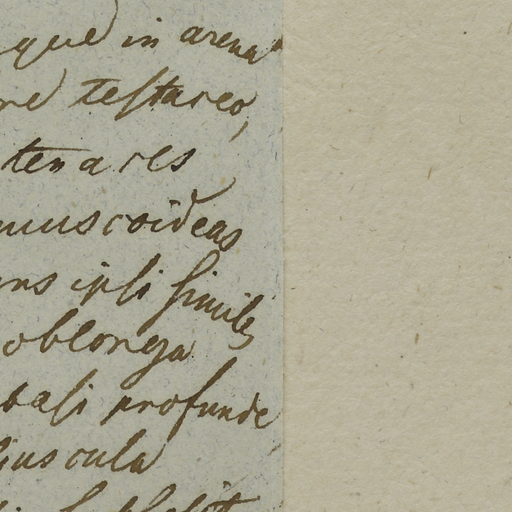 que in arena
testareo,
tenares
muscoideas
ipsi similes
oblonga
basi profunde
iuscula